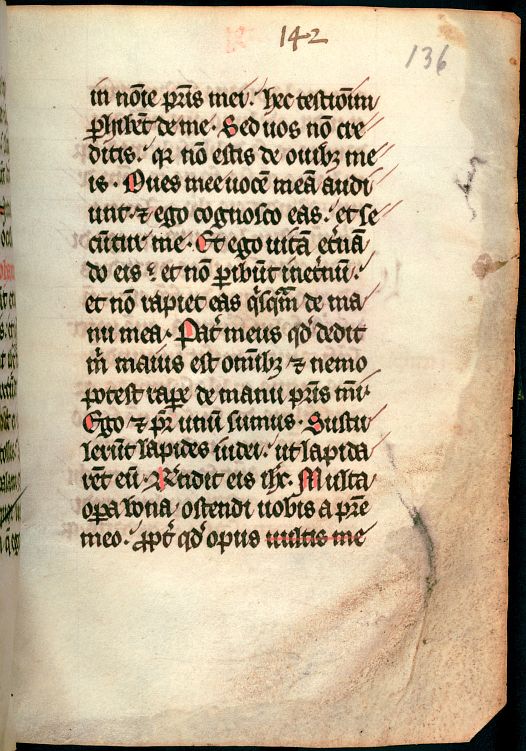 142
136
in nōīe pr̄is mei. hec testiōīm
ꝑhibēt de me. Sed uos nō cre
ditis. qꝛ nō estis de ouibꝫ me
is. Oues mee uocē meā audi
unt. ⁊ ego cognosco eas. et se
cūtur me. Et ego uitā et̄nā
do eis ⁊ et nō ꝑibūt inet̄nū.
et nō rapiet eas q̄sq̄m de ma
nu mea. Pat̄ meus qd̄ dedit
m̄ maius est om̄ibꝫ ⁊ nemo
potest raꝑe de manu pr̄is mī.
Ego ⁊ pr̄ unū sumus. Sustu
lerūt lapides iudei. ut lapida
rēt eū. R̄ndit eis ihc̄. Multa
oꝑa bona ostendi uobis a pr̄e
meo. ꝓpt̄ qd̄ opus uultis me